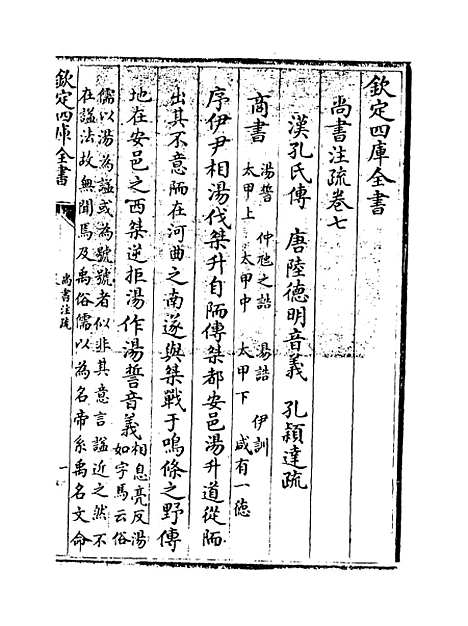 欽定四庫全書
尚書注疏卷七
漢孔氏傳　唐陸德明音義　孔穎達疏
商書
湯誓　仲虺之誥　湯誥　伊訓
太甲上　太甲中　太甲下　咸有一德
序伊尹相湯伐桀升自陑傳桀都安邑湯升道從陑
出其不意陑在河曲之南遂與桀戰于鳴條之野傳
地在安邑之西桀逆拒湯作湯誓音義
相息亮反湯
如字馬云俗
儒以湯為諡或為號號者似非其意言諡近之然不
在諡法故無聞焉及禹俗儒以為名帝系禹名文命
欽定四庫全書
尚書注疏
一